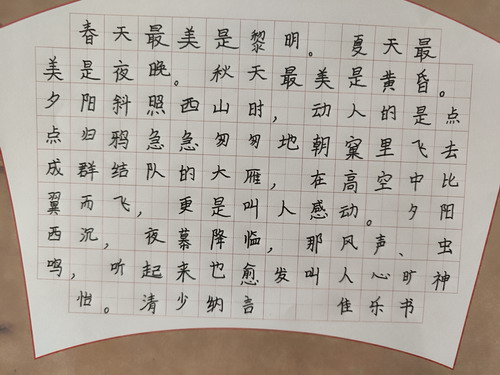 春天最美是黎明。 夏天最
美是夜晚。 秋天最美是黄昏。
夕阳斜照西山时，动人的是点
点归鸦急急匆匆地朝窠里飞去
成群结队的大雁，在高空中比
翼而飞，更是叫人感动。夕阳
西沉，夜幕降临，那风声、虫
鸣，听起来也愈发叫人心旷神
怡。清少纳言 佳乐书